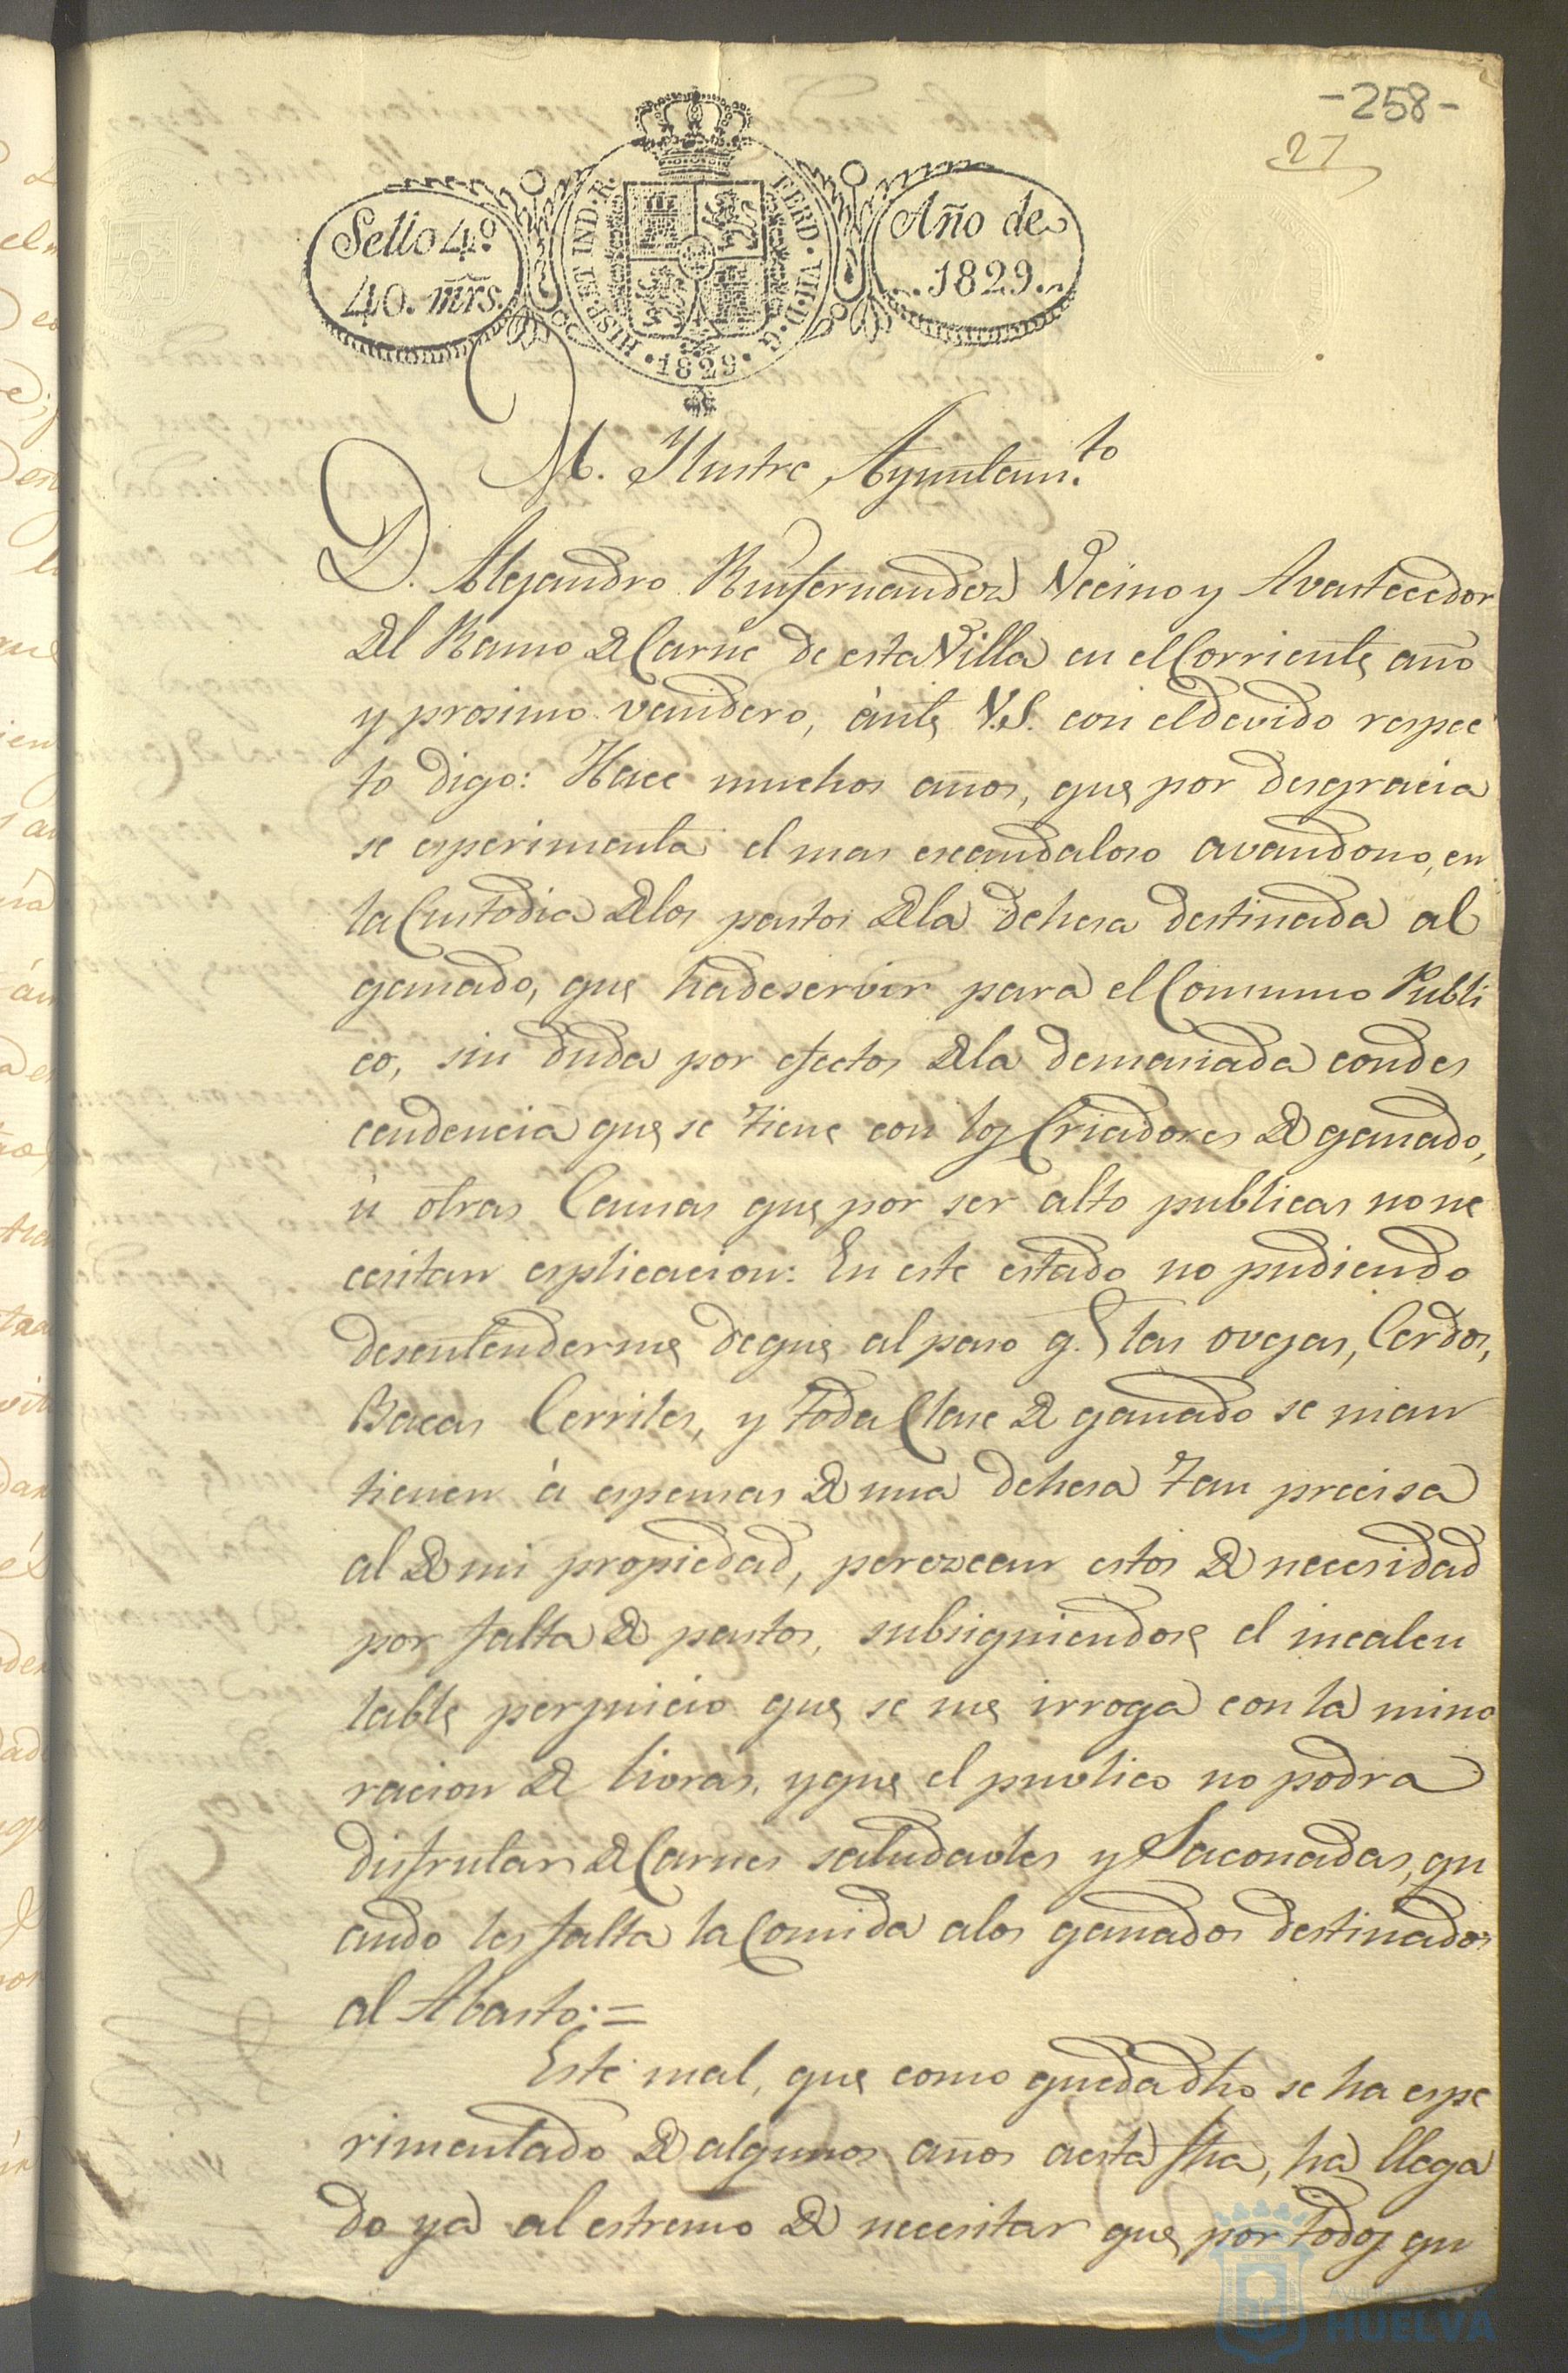 -258-
27
Sello 4º
40. mrs.
HISP. ET IND. R. FERD. VII. D. G.
1829
Año de
1829
M. Ylustre Ayuntam.to
D. Alejandro Ruifernandez Vecino y Avastecedor
del Ramo de Carne de esta Villa en el Corriente año
y prosimo venidero, ànte V.S. con el devido respec
to digo: Hace muchos años, que por desgracia
se esperimenta el mas escandaloso avandono, en
la Custodia de los pastos de la dehesa destinada al
ganado, que ha de servir para el Consumo Publi
co, sin duda por efectos de la demasiada condes
cendencia que se tiene con los Criadores de ganado,
ù otras Causas que por ser alto publicas no ne
cesitan esplicacion: En este estado no pudiendo
desentenderme de que al paso q.e las ovejas, Cerdos,
Bacas Cerriles, y toda Clase de ganado se man
tienen à espensas de una dehesa tan precisa
al de mi propiedad, perezcan estos de necesidad
por falta de pastos, subsiguiendose el incalcu
lable perjuicio que se me irroga con la mino
racion de livras, y que el publico no podra
disfrutar de Carnes saludavles y Saconadas, qu
ando les falta la Comida a los ganados destinados
al Abasto: =
Este mal, que como queda dho se ha espe
rimentado de algunos años a esta fha, ha llega
do ya al estremo de necesitar que por todos qu
Ayuntamiento de
HUELVA